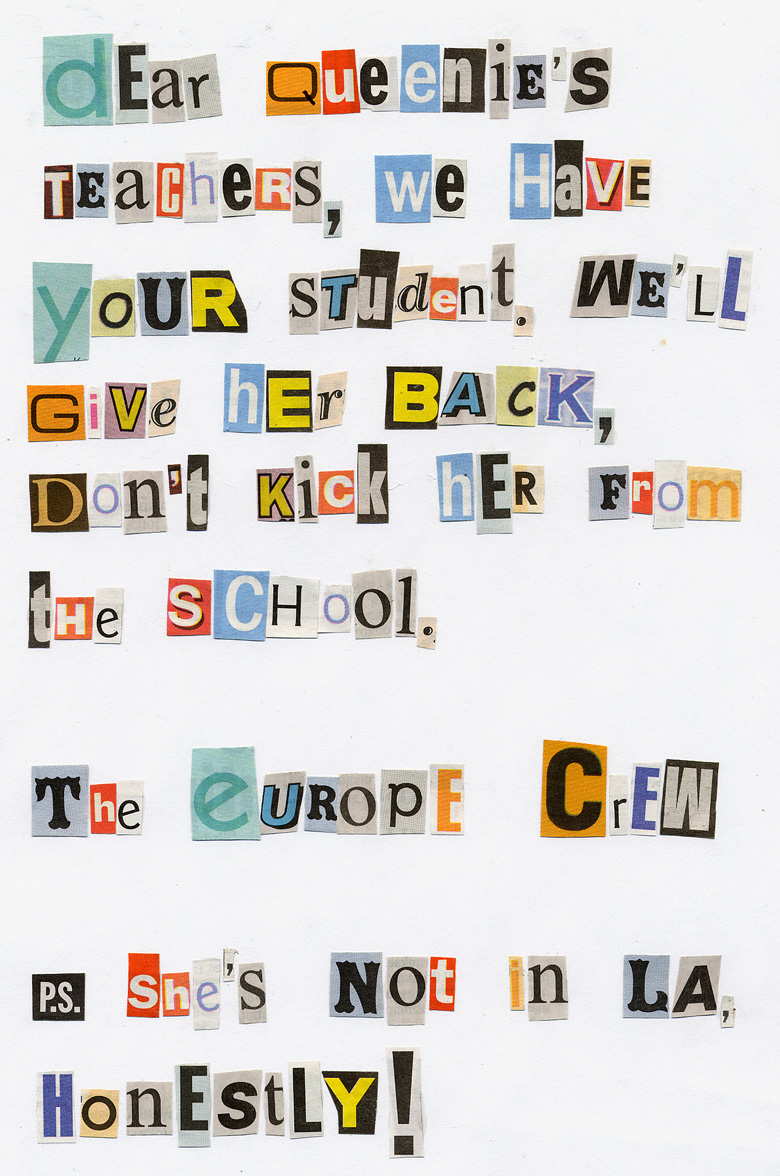 dEar QueeniE's
TEaChers, we HaVE
yoUR STudent. WE'LL
GiVe hEr BACK,
Don't KicK hER From
tHe SCHool.
The euRopE CrEW
P.S. She's Not in LA,
HonEStLY!